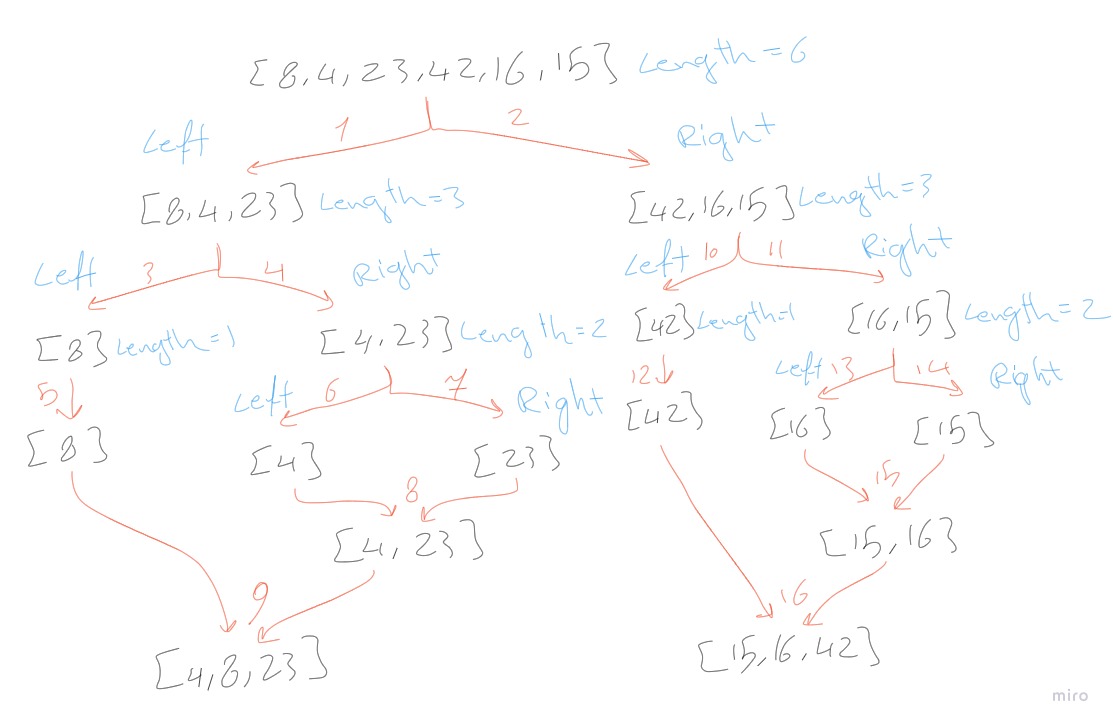 [8,4,23,42,16,15] Length=6
1 2
Left Right
[8,4,23] Length=3 [42,16,15] Length=3
Left 3 4 Right Left 10 11 Right
[8] Length=1 [4,23] Length=2 [42] Length=1 [16,15] Length=2
5 Left 6 7 Right 12 Left 13 14 Right
[8] [4] [23] [42] [16] [15]
8 15
[4,23] [15,16]
9 16
[4,8,23] [15,16,42]
miro